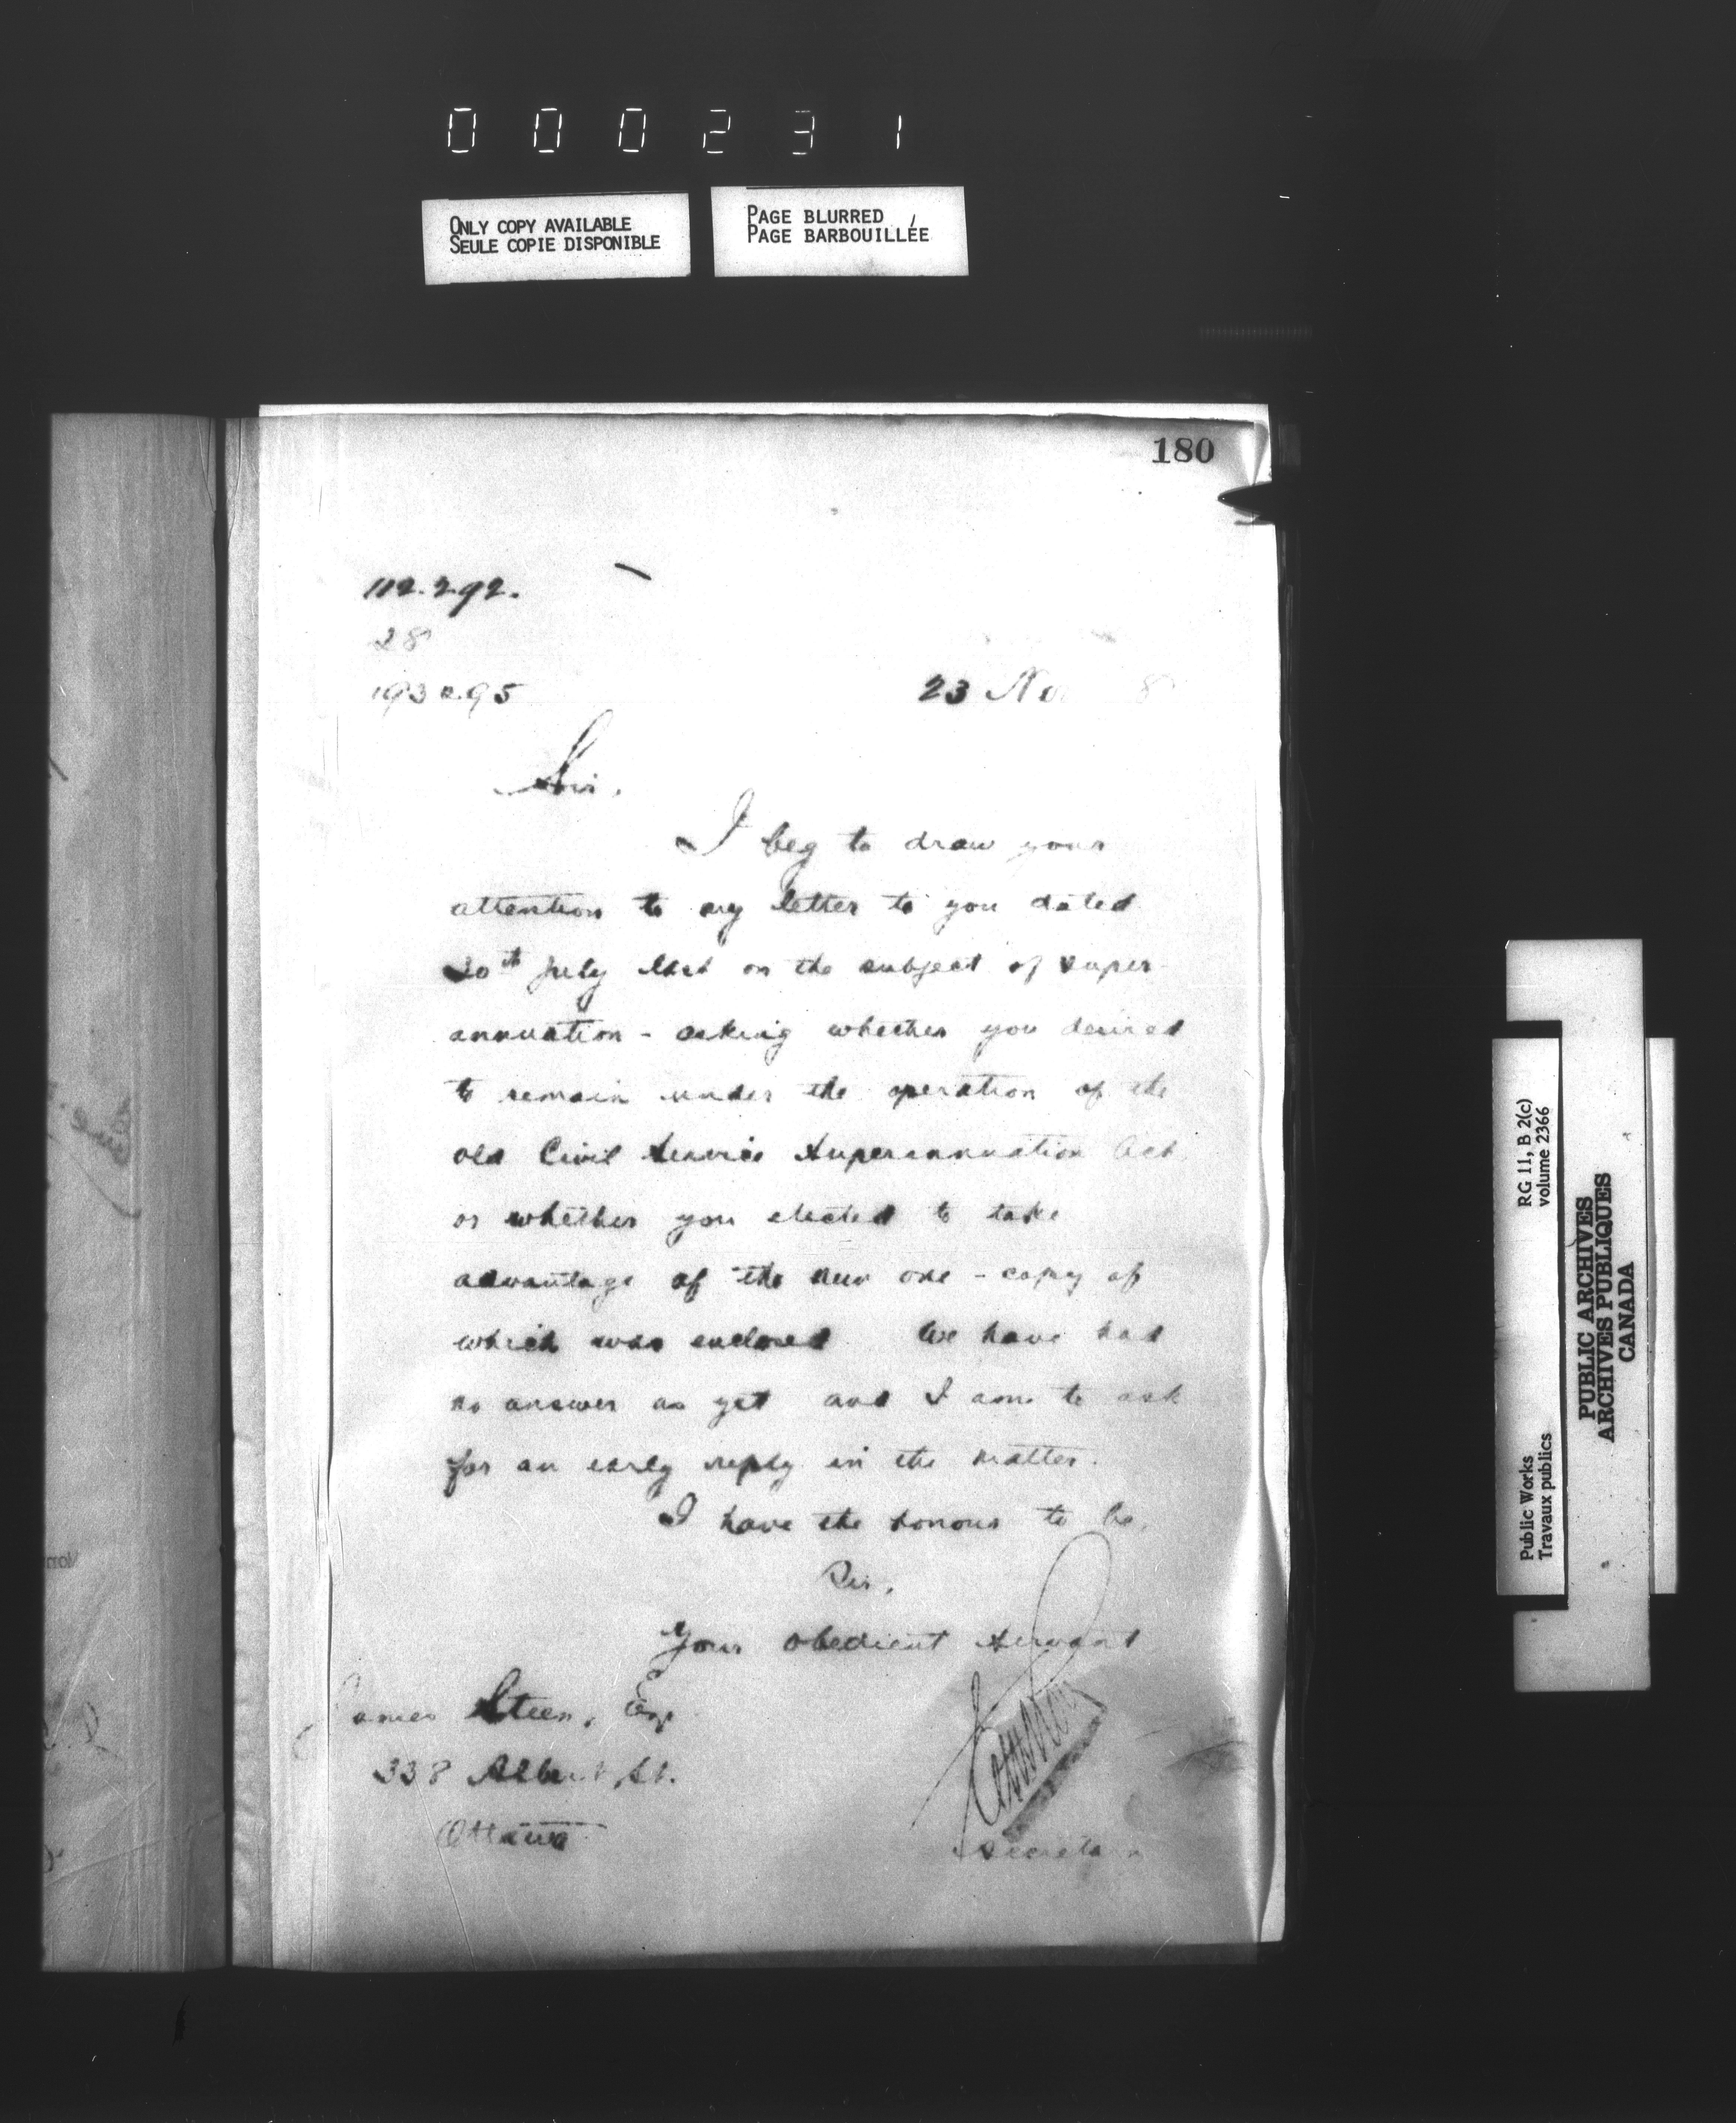 000231
ONLY COPY AVAILABLE
SEULE COPIE DISPONIBLE
PAGE BLURRED
PAGE BARBOUILLÉE
180
112.292.
28
23 No
Sir,
I beg to draw your
attention to my letter to you dated
20th July last on the subject of super-
annuation - asking whether you desired
to remain under the operation of the
old Civil Service Superannuation Act
or whether you elected to take
advantage of the new one - copy of
which was enclosed We have had
no answer as yet and I am to ask
for an early reply in the matter.
I have the honour to be,
Sir,
Your obedient servant
James Steen, Esq
338 Albert St.
Ottawa
Secretary
RG 11, B 2(c)
volume 2366
Public Works
Travaux publics
PUBLIC ARCHIVES
ARCHIVES PUBLIQUES
CANADA